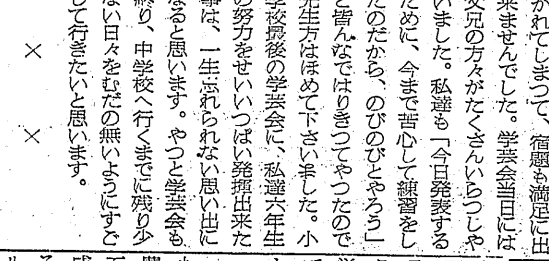 かれてしまつて、宿題も満足に出
来ませんでした。学芸会当日には
父兄の方々がたくさんいらつしや
いました。私達も「今日発表する
ために、今まで苦心して練習をし
たのだから、のびのびとやろう」
と皆んなではりきつてやつたので
先生方はほめて下さいました。小
学校最後の学芸会に、私達六年生
の努力をせいいつぱい発揮出来た
事は、一生忘れられない思い出に
なると思います。やつと学芸会も
終り、中学校へ行くまでに残り少
ない日々をむだの無いようにすご
して行きたいと思います。
× ×